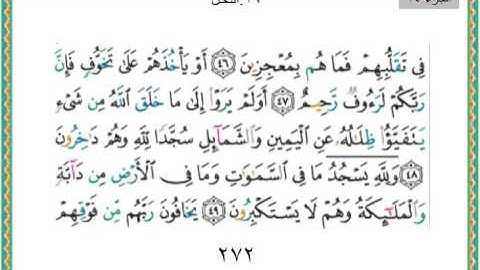 ١٦ .النحل
فِي تَقَلُّبِهِمْ فَمَا هُم بِمُعْجِزِينَ ٤٦ أَوْ يَأْخُذَهُمْ عَلَىٰ تَخَوُّفٍ فَإِنَّ
رَبَّكُمْ لَرَءُوفٌ رَّحِيمٌ ٤٧ أَوَلَمْ يَرَوْا۟ إِلَىٰ مَا خَلَقَ ٱللَّهُ مِن شَىْءٍ
يَتَفَيَّؤُا۟ ظِلَٰلُهُۥ عَنِ ٱلْيَمِينِ وَٱلشَّمَآئِلِ سُجَّدًا لِّلَّهِ وَهُمْ دَٰخِرُونَ
٤٨ وَلِلَّهِ يَسْجُدُ مَا فِى ٱلسَّمَٰوَٰتِ وَمَا فِى ٱلْأَرْضِ مِن دَآبَّةٍ
وَٱلْمَلَٰٓئِكَةُ وَهُمْ لَا يَسْتَكْبِرُونَ ٤٩ يَخَافُونَ رَبَّهُم مِّن فَوْقِهِمْ
٢٧٢